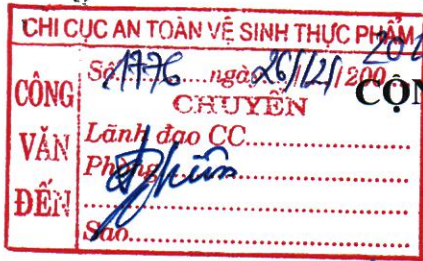 CHI CỤC AN TOÀN VỆ SINH THỰC PHẨM
CÔNG VĂN ĐẾN
Số 1776 ngày 26/12/200
CHUYỂN
Lãnh đạo CC
Phòng
Sao
CỘN